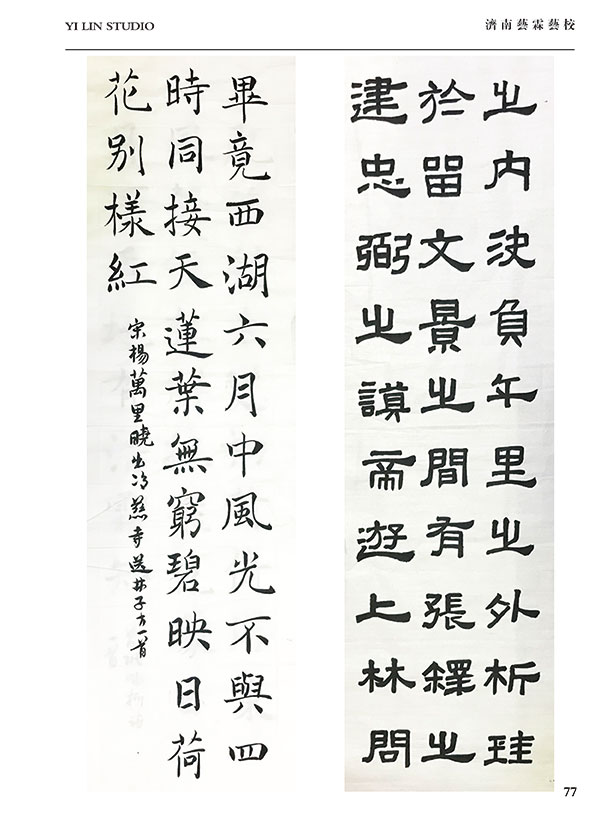 YI LIN STUDIO
濟南藝霖藝校
之內決負千里之外析珪
於留文景之間有張釋之
建忠弼之謨帝遊上林問
畢竟西湖六月中風光不與四
時同接天蓮葉無窮碧映日荷
花別樣紅
宋楊萬里曉出淨慈寺送林子方一首
77